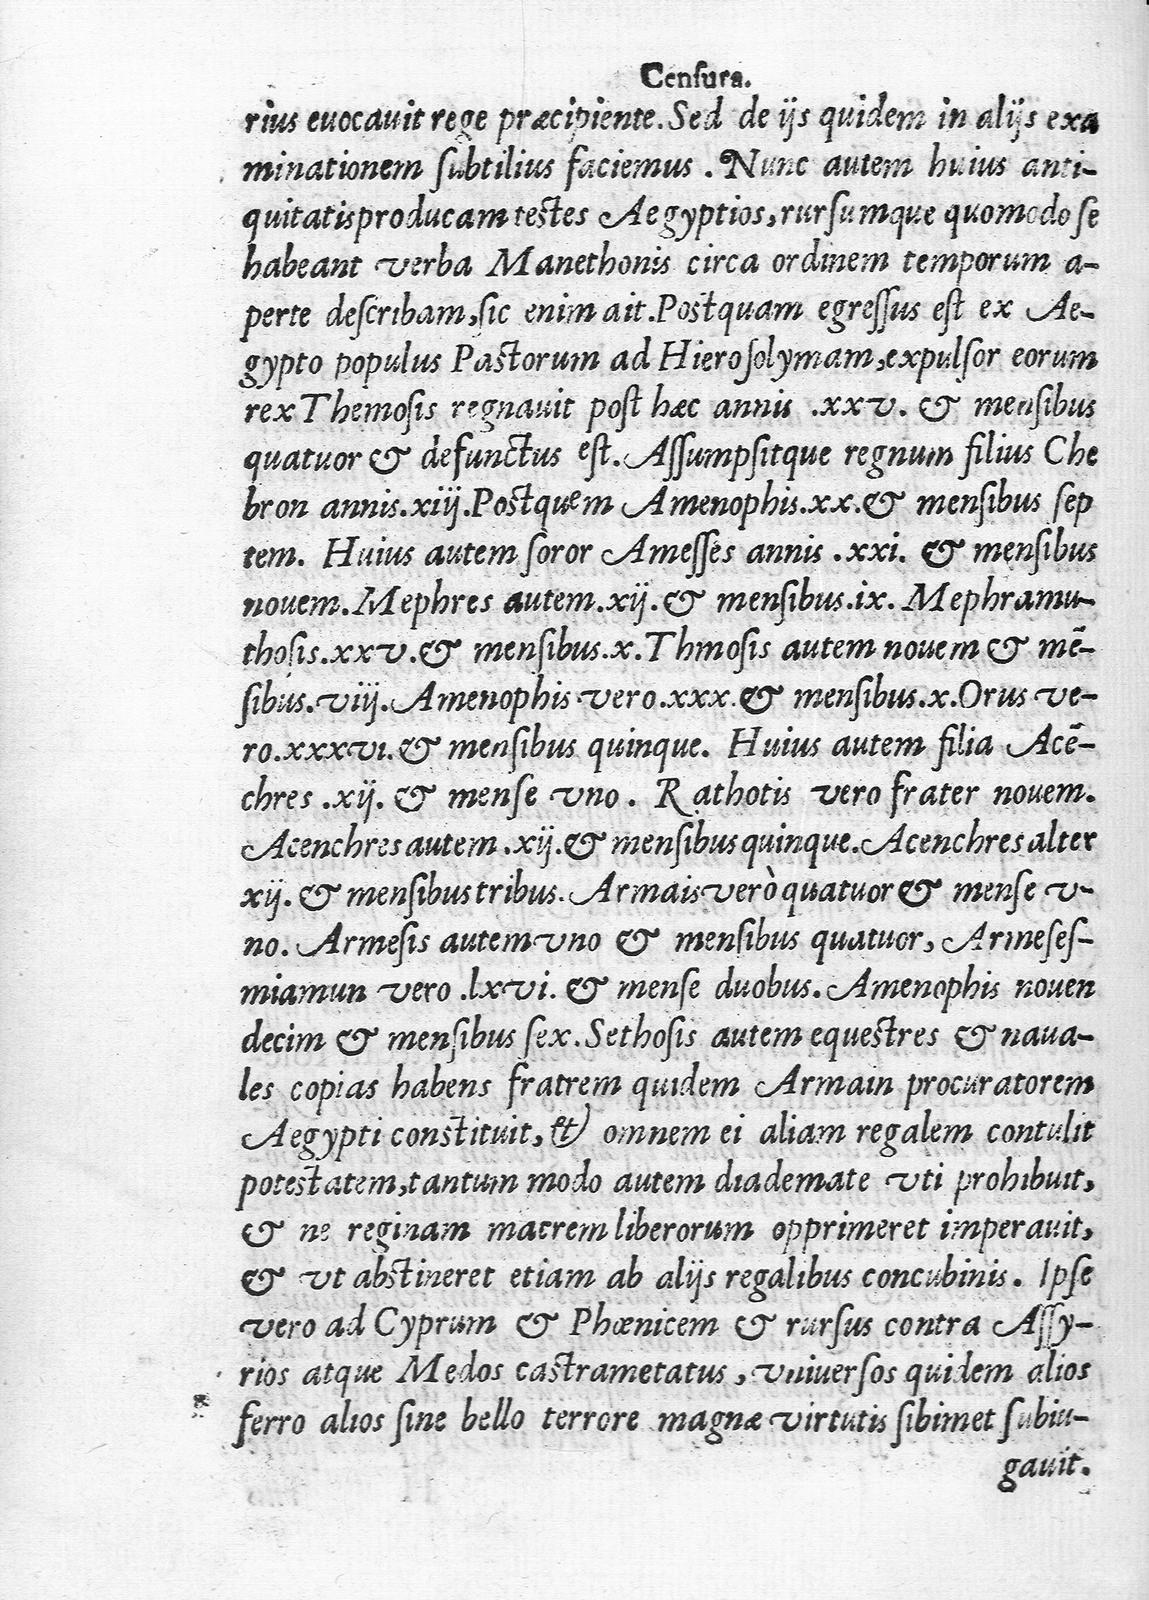 Censura.
rius euocauit rege præcipiente. Sed de ijs quidem in alijs exa
minationem subtilius faciemus. Nunc autem huius anti-
quitatis producam testes Aegyptios, rursumque quomodo se
habeant verba Manethonis circa ordinem temporum a-
perte describam, sic enim ait. Postquam egressus est ex Ae-
gypto populus Pastorum ad Hierosolymam, expulsor eorum
rex Themosis regnauit post hæc annis .xxv. & mensibus
quatuor & defunctus est. Assumpsitque regnum filius Che
bron annis .xiij. Postquem Amenophis .xx. & mensibus sep
tem. Huius autem soror Amesses annis .xxi. & mensibus
nouem. Mephres autem .xij. & mensibus .ix. Mephramu-
thosis .xxv. & mensibus .x. Thmosis autem nouem & mē-
sibus .viij. Amenophis vero .xxx. & mensibus .x. Orus ve-
ro .xxxvi. & mensibus quinque. Huius autem filia Acē-
chres .xij. & mense vno. Rathotis vero frater nouem.
Acenchres autem .xij. & mensibus quinque. Acenchres alter
xij. & mensibus tribus. Armais verò quatuor & mense v-
no. Armesis autem vno & mensibus quatuor, Armeses-
miamun vero .lxvi. & mense duobus. Amenophis nouen
decim & mensibus sex. Sethosis autem equestres & naua-
les copias habens fratrem quidem Armain procuratorem
Aegypti constituit, et omnem ei aliam regalem contulit
potestatem, tantum modo autem diademate vti prohibuit,
& ne reginam matrem liberorum opprimeret imperauit,
& vt abstineret etiam ab alijs regalibus concubinis. Ipse
vero ad Cyprum & Phœnicem & rursus contra Assy-
rios atque Medos castrametatus, vniuersos quidem alios
ferro alios sine bello terrore magnæ virtutis sibimet subiu-
gauit.